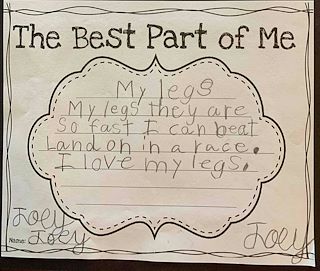 The Best Part of Me
My legs
My legs they are
So fast I can beat
Landon in a race.
I love my legs.
Joey
Name: Joey
Joey